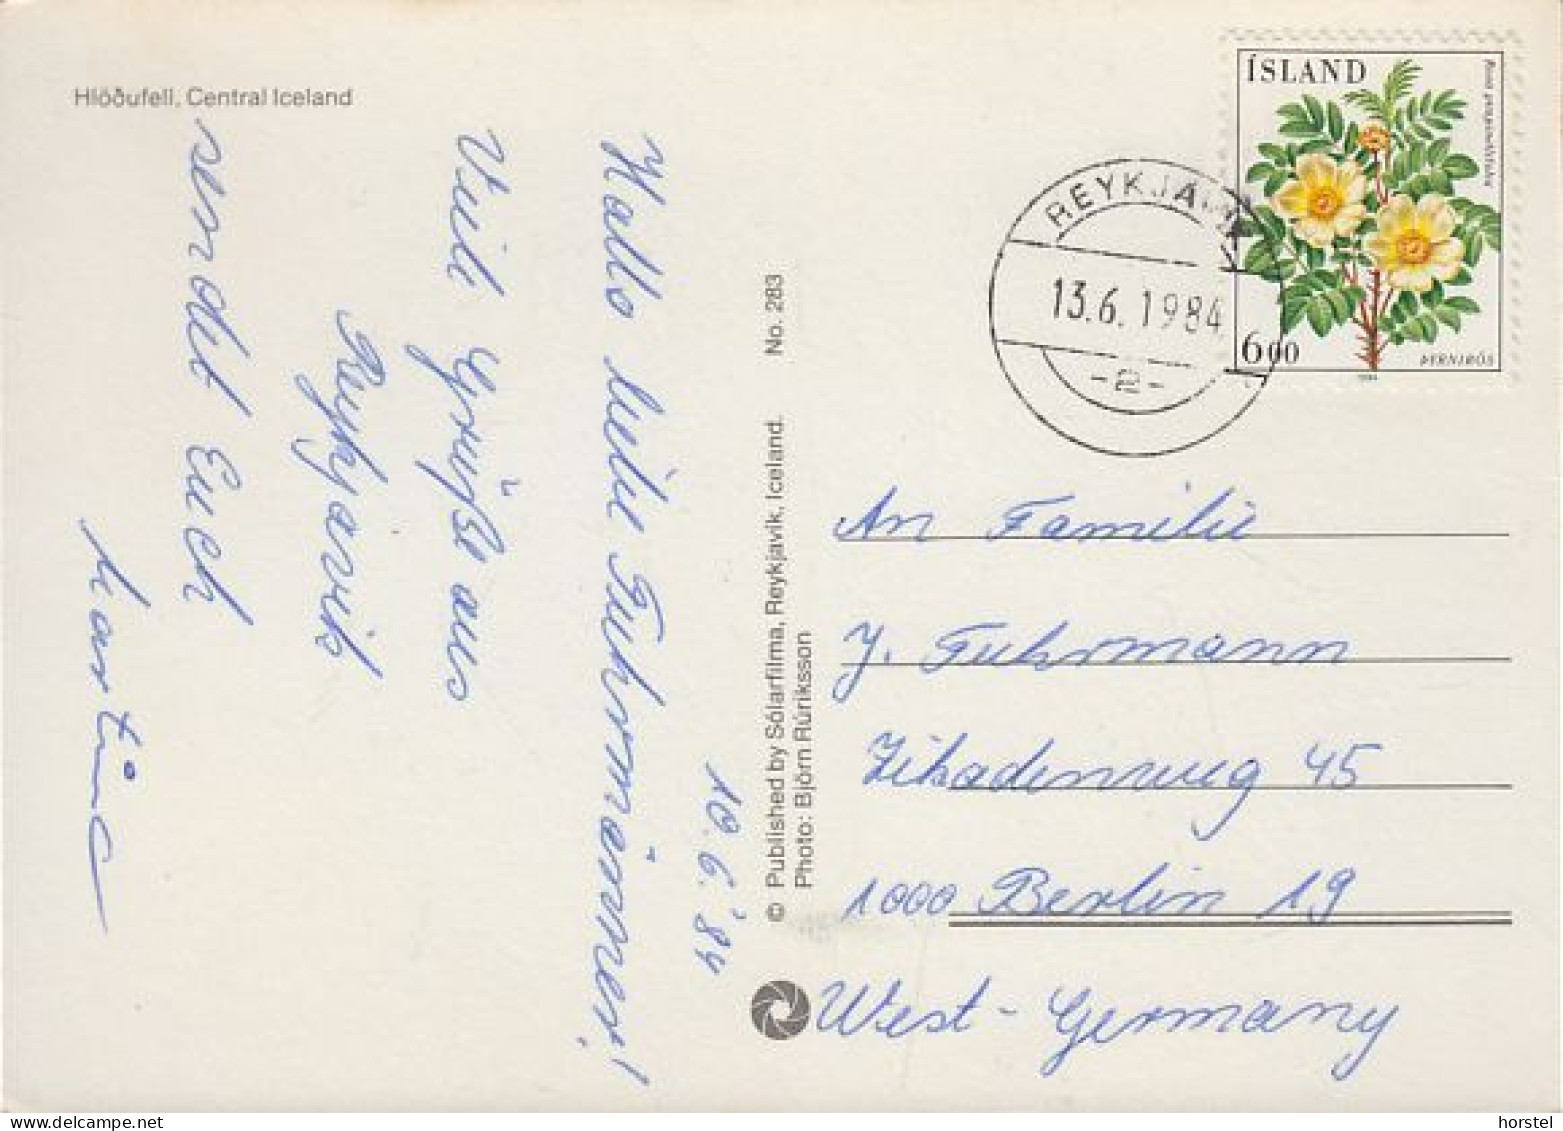 Hlöðufell, Central Iceland
10.6.'84
Hallo liebe Fuhrmänner!
Viele Grüße aus
Reykjavik
sendet Euch
Martina
© Published by Sólarfilma, Reykjavík, Iceland. No. 283
Photo: Björn Rúriksson
ÍSLAND
Rosa pimpinellifolia
600
ÞYRNIRÓS
1984
REYKJAVÍK
13.6.1984
-2-
An Familie
J. Fuhrmann
Zikadenweg 45
1000 Berlin 19
West-Germany
horstel